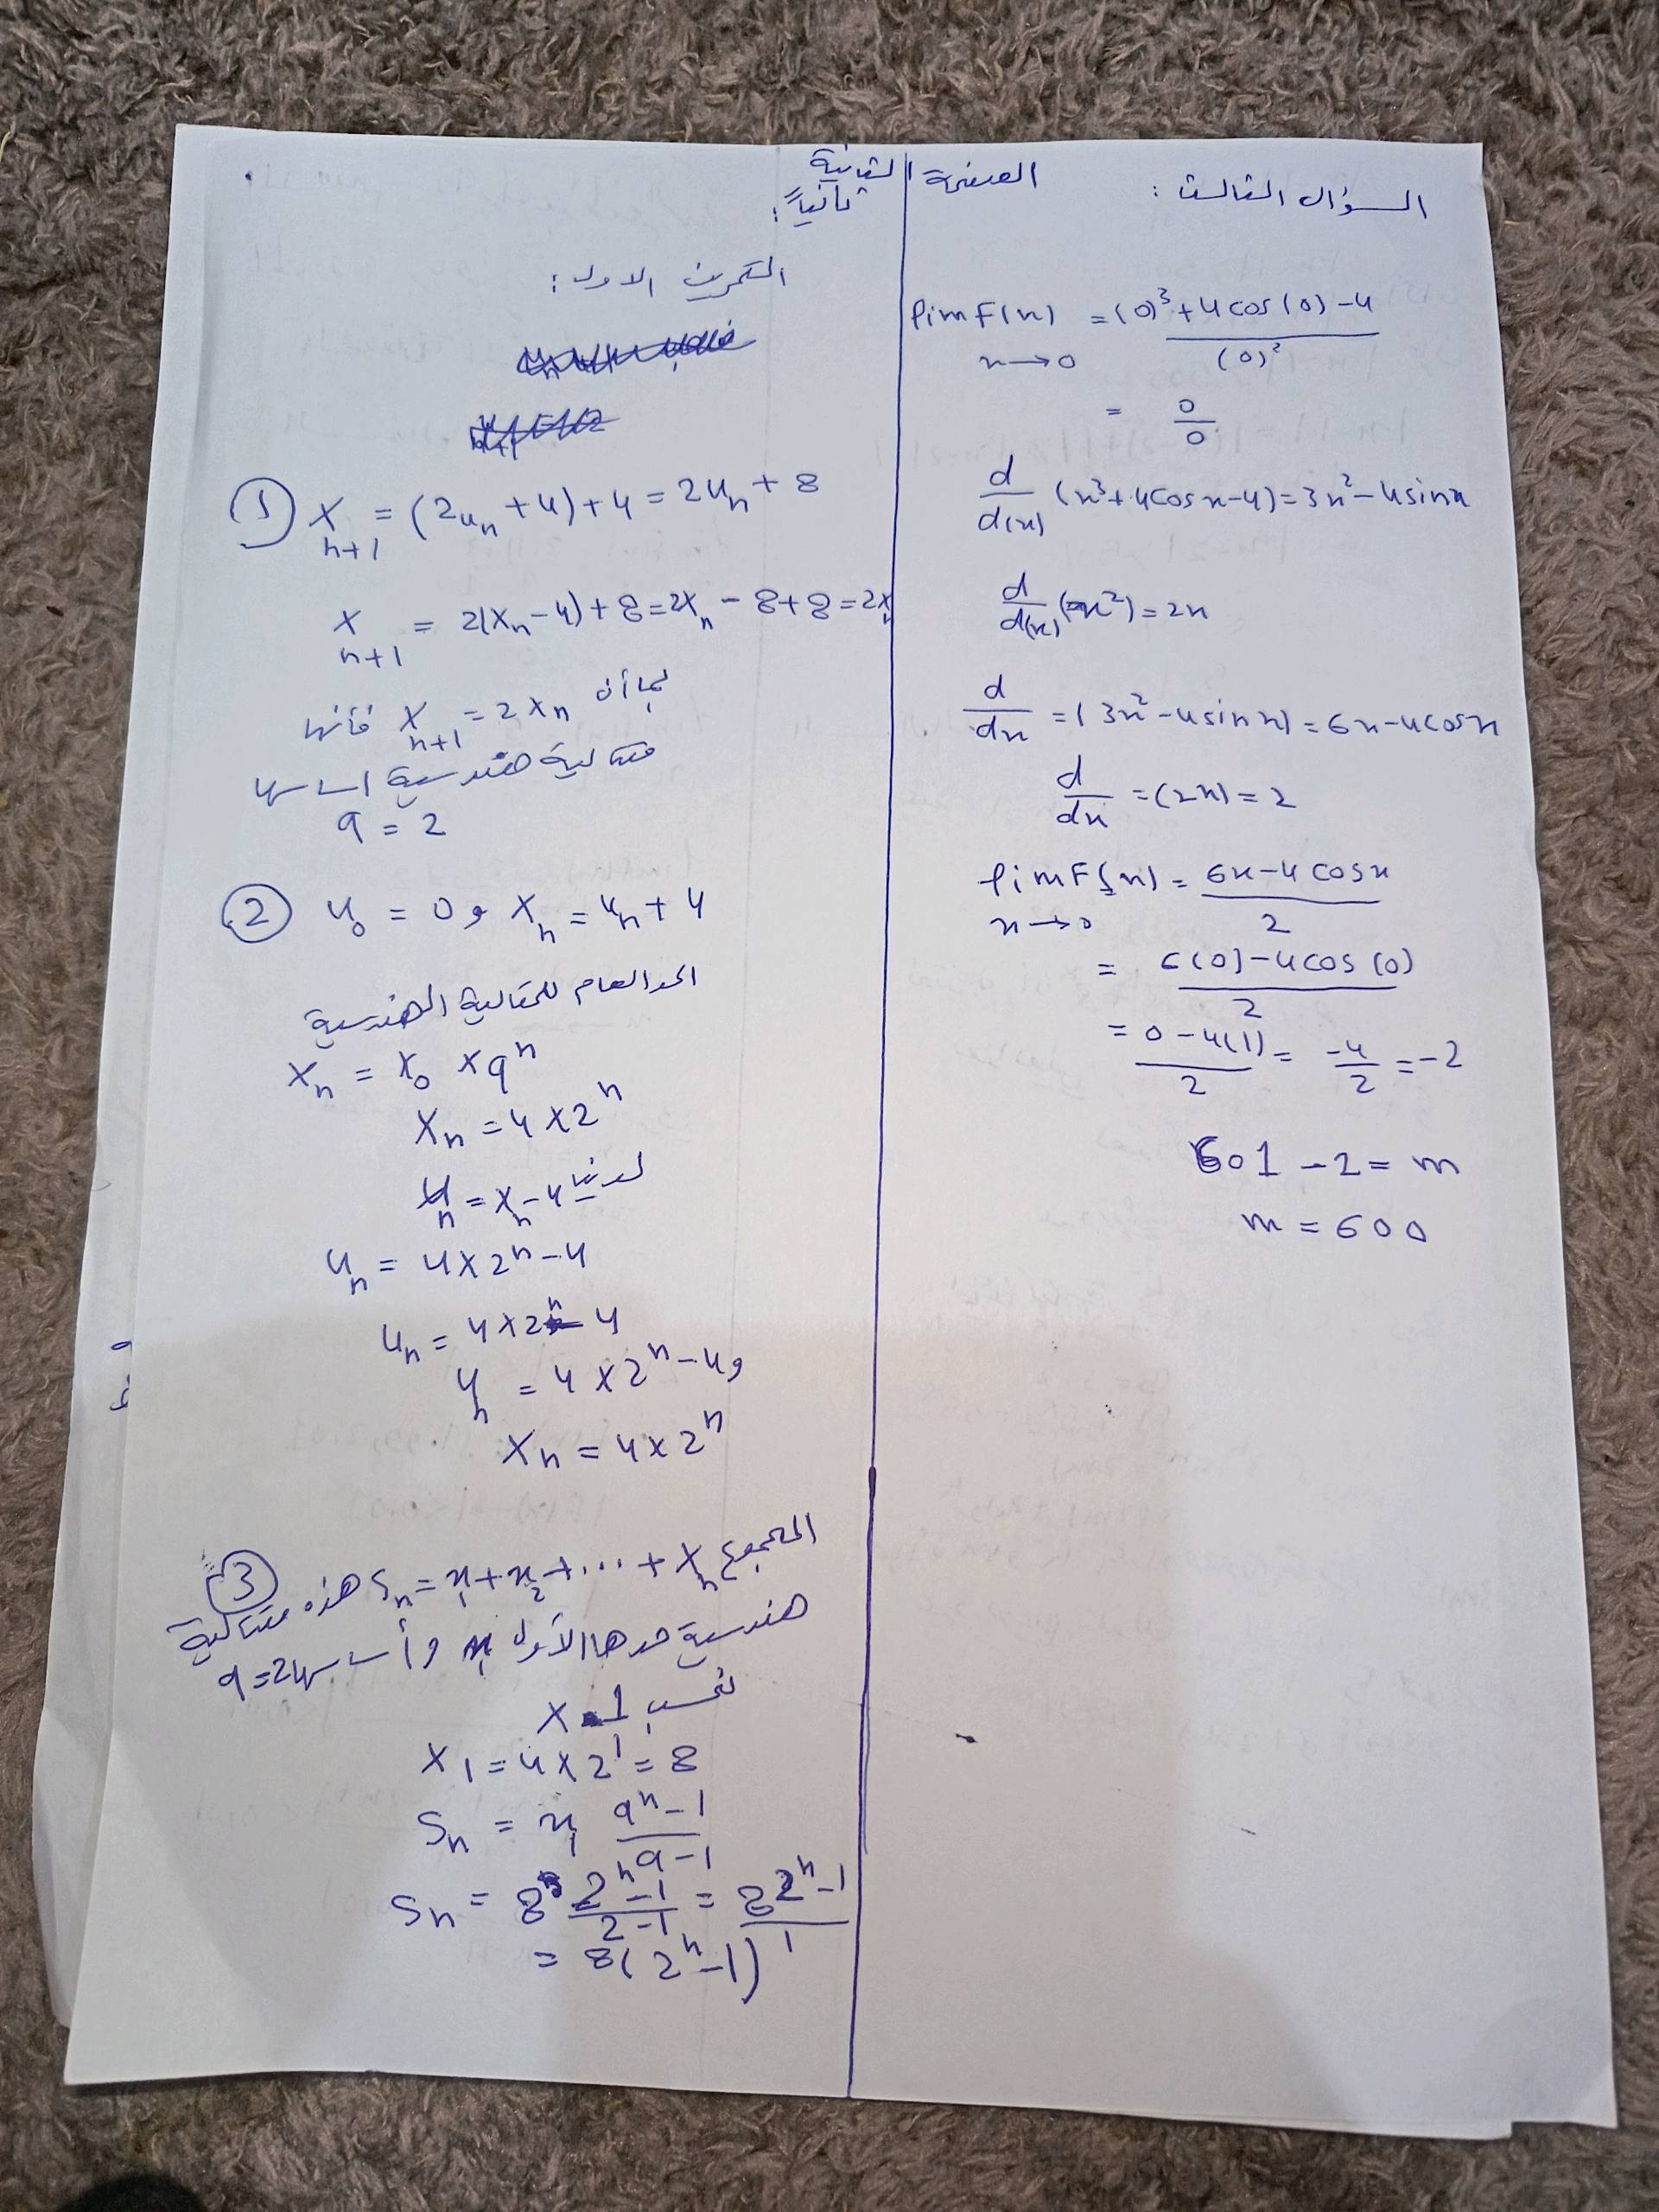 الصفحة الثانية
السؤال الثالث :
lim F(x) = (0)³ + 4 cos(0) - 4 / (0)²
x → 0
= 0/0
d/d(x) (x³ + 4cos x - 4) = 3x² - 4 sin x
d/d(x) (x²) = 2x
d/dx = (3x² - 4 sin x) = 6x - 4 cos x
d/dx = (2x) = 2
lim F(x) = 6x - 4 cos x / 2
x → 0
= 6(0) - 4 cos (0) / 2
= 0 - 4(1) / 2 = -4/2 = -2
601 - 2 = m
m = 600
ثانياً :
التمرين الاول :
① X_{n+1} = (2u_n + 4) + 4 = 2u_n + 8
X_{n+1} = 2(X_n - 4) + 8 = 2X_n - 8 + 8 = 2X_n
بما أن X_{n+1} = 2X_n فأنها
متتالية هندسية اساسها
q = 2
② u_0 = 0 و X_n = u_n + 4
الحد العام للمتتالية الهندسية
X_n = X_0 × q^n
X_n = 4 × 2^n
لدينا u_n = X_n - 4
u_n = 4 × 2^n - 4
u_n = 4 × 2^n - 4
u_n = 4 × 2^n - 4 و
X_n = 4 × 2^n
③ المجموع S_n = x_1 + x_2 + ... + X_n هذه متتالية
هندسية حدها الأول x_1 و أساسها q = 2
نحسب X 1
X_1 = 4 × 2^1 = 8
S_n = x_1 q^n - 1 / q - 1
S_n = 8 2^n - 1 / 2 - 1 = 8 2^n - 1 / 1
= 8(2^n - 1)